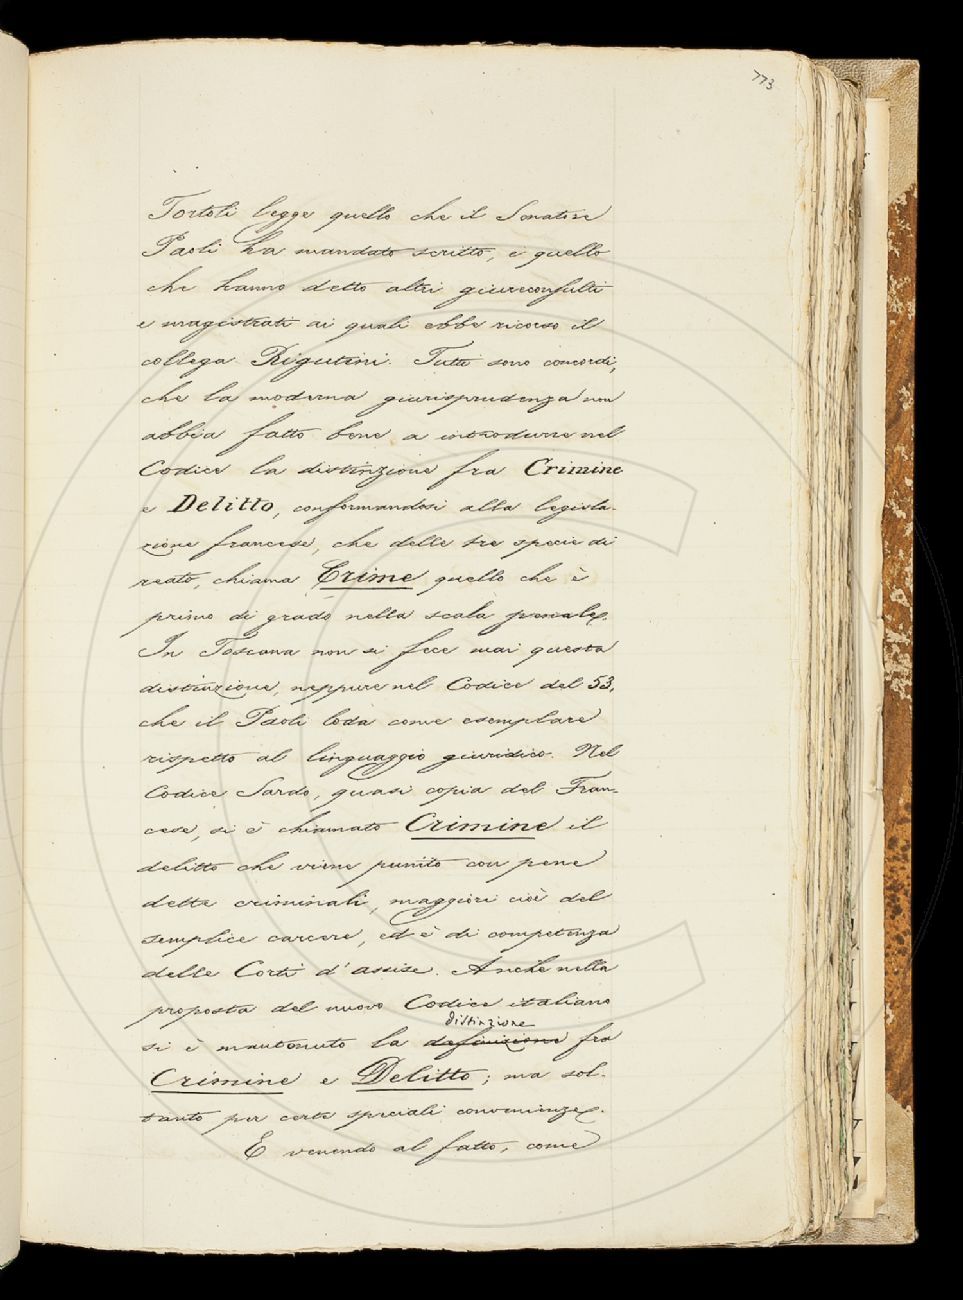 773
Tortoli legge quello che il Senatore
Paoli ha mandato scritto, e quello
che hanno detto altri giureconsulti
e magistrati ai quali ebbe ricorso il
collega Rigutini. Tutti sono concordi,
che la moderna giurisprudenza non
abbia fatto bene a introdurre nel
Codice la distinzione fra Crimine
e Delitto, conformandosi alla legisla-
zione francese, che delle tre specie di
reato, chiama Crime quello che è
primo di grado nella scala penale.
In Toscana non si fece mai questa
distinzione, neppure nel Codice del 53,
che il Paoli loda come esemplare
rispetto al linguaggio giuridico. Nel
Codice Sardo, quasi copia del Fran-
cese, si è chiamato Crimine il
delitto che viene punito con pene
dette criminali, maggiori cioè del
semplice carcere, ed è di competenza
delle Corti d'assise. Anche nella
proposta del nuovo Codice italiano
distinzione
si è mantenuto la definizione fra
Crimine e Delitto; ma sol-
tanto per certe speciali convenienze.
E venendo al fatto, come